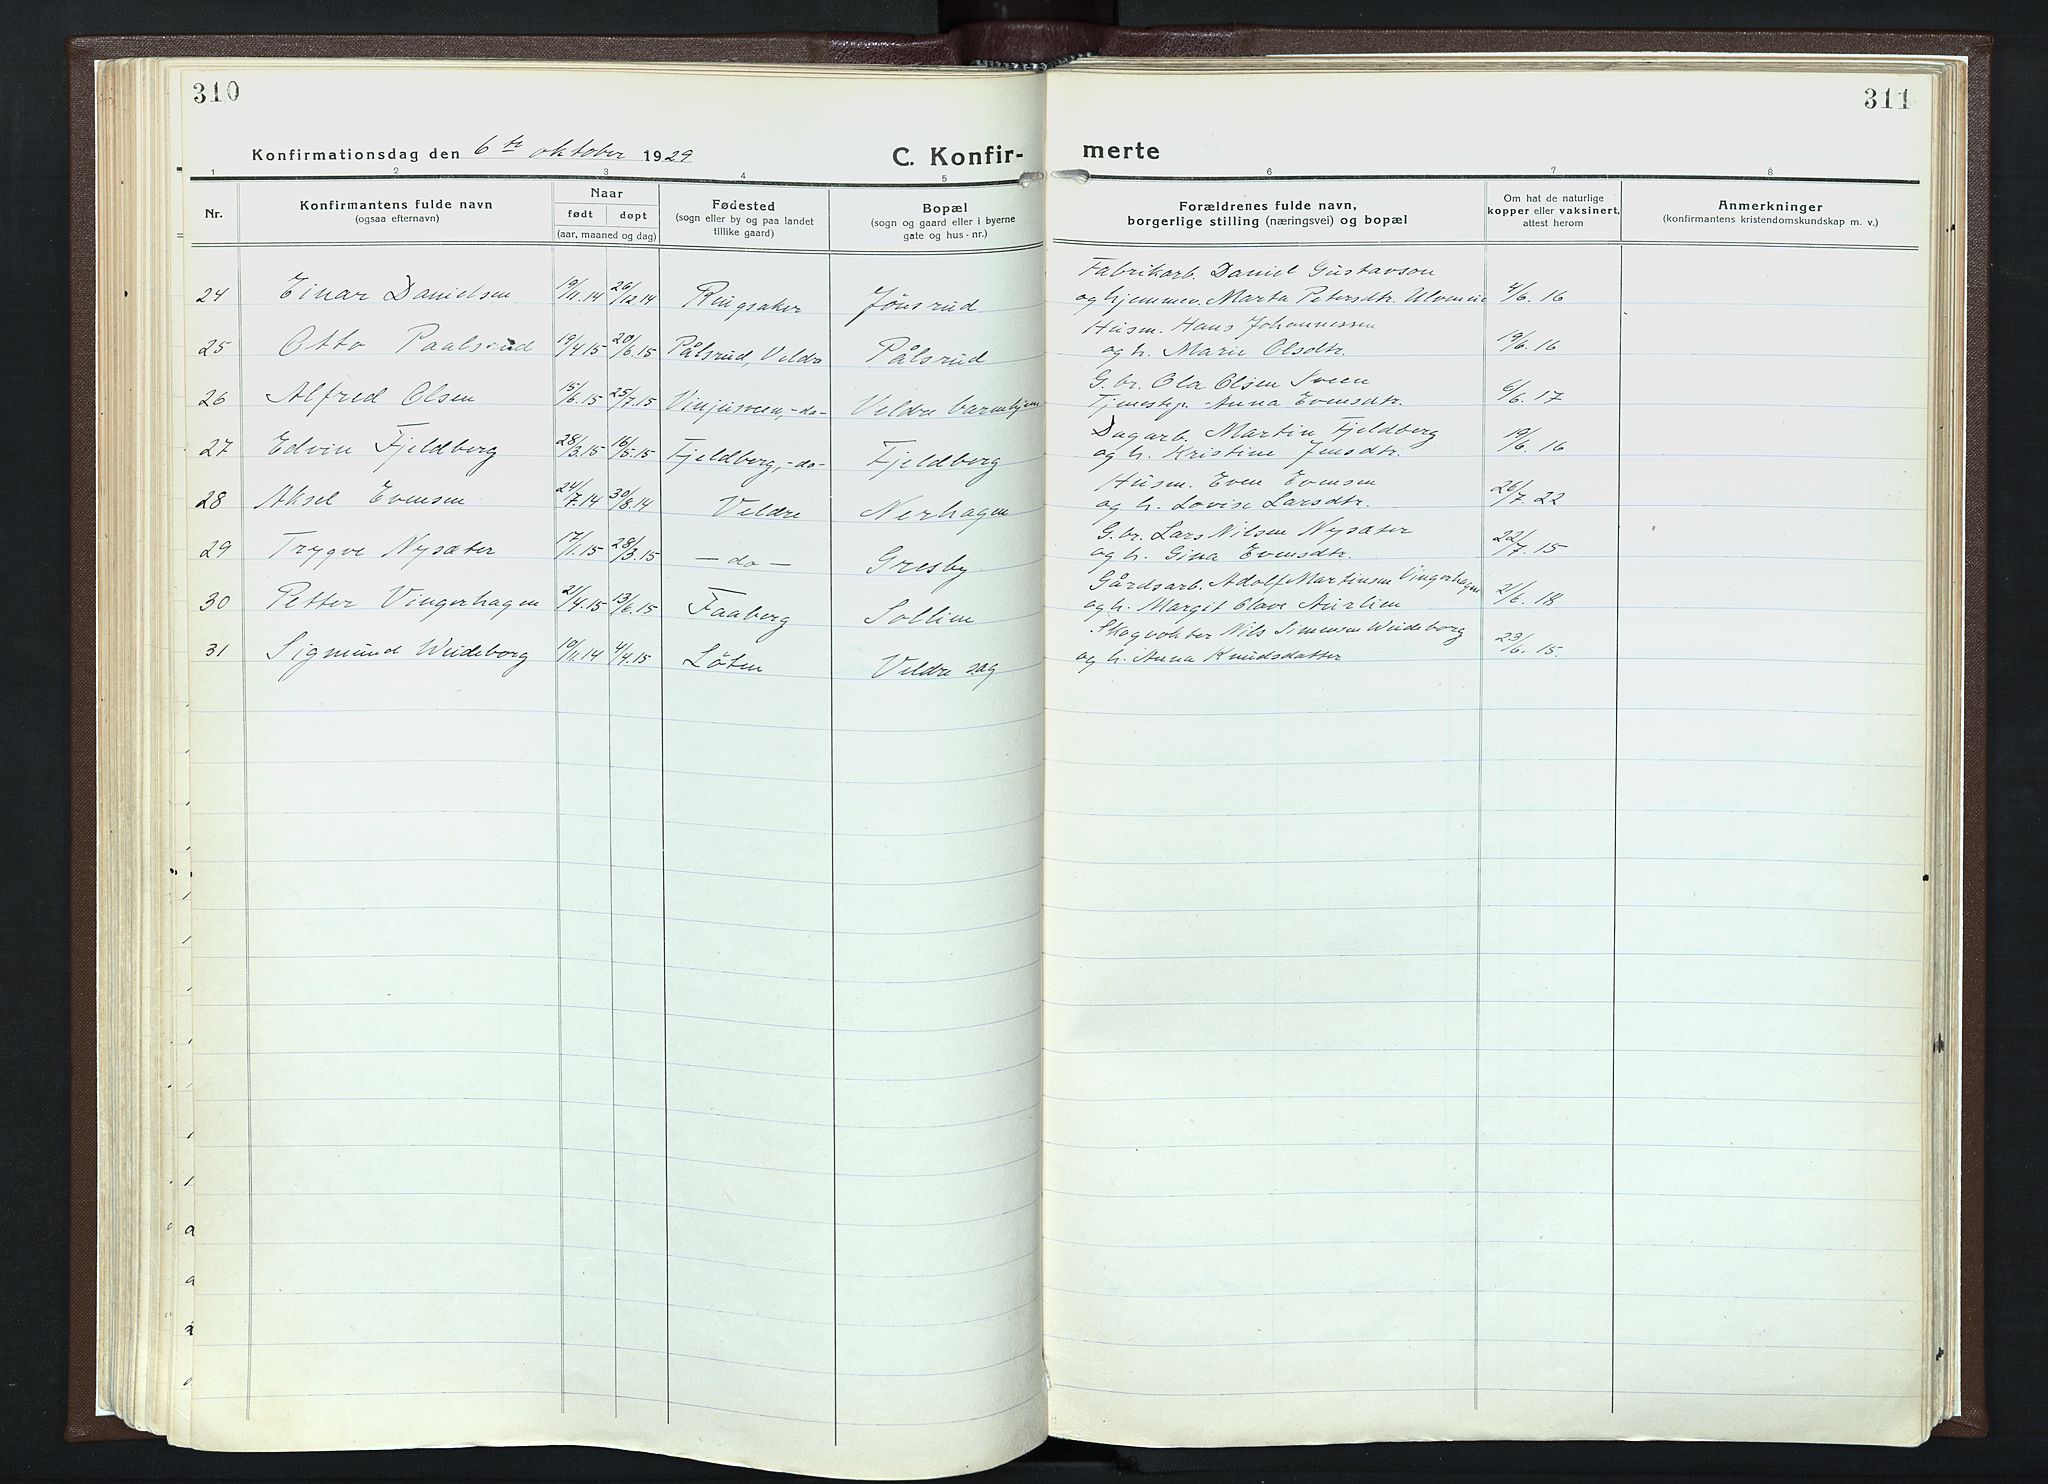 310
311
Konfirmationsdag den 6te oktober 1929
C. Konfir-
merte
1 2 3 4 5 6 7 8
Nr.
Konfirmantens fulde navn
(ogsaa efternavn)
Naar
født døpt
(aar, maaned og dag)
Fødested
(sogn eller by og paa landet
tillike gaard)
Bopæl
(sogn og gaard eller i byerne
gate og hus-nr.)
Forældrenes fulde navn,
borgerlige stilling (næringsvei) og bopæl
Om hat de naturlige
kopper eller vaksinert,
attest herom
Anmerkninger
(konfirmantens kristendomskundskap m. v.)
Fabrikarb. Daniel Gustavson
24 Einar Danielsen 19/11.14 26/12.14 Ringsaker Jönsrud og hjemmev. Marta Petersdtr. 4/6. 16
Husm. Hans Johannessen
25 Otto Paalsrud 19/4.15 20/6.15 Pålsrud, Veldre Pålsrud og h. Marie Olsdtr. 19/6. 16
G. br. Ola Olsen Sveen
26 Alfred Olsen 15/6.15 25/7.15 Vinjusveen, -do- Veldre barnehjem Tjenestep. Anna Evensdtr. 6/6. 17
Dagarb. Martin Fjeldberg
27 Edvin Fjeldberg 28/3.15 16/5.15 Fjeldberg, -do- Fjeldberg og h. Kristine Jensdtr. 19/6. 16
Husm. Even Evensen
28 Aksel Evensen 24/7.14 30/8.14 Veldre Nerhagen og h. Lovise Larsdtr. 26/7. 22
G. br. Lars Nilsen Nysæter
29 Trygve Nysæter 17/1.15 28/3.15 - do - Gresby og h. Gina Evensdtr. 22/7. 15
Gårdsarb. Adolf Martinsen Vingerhagen
30 Petter Vingerhagen 21/4.15 13/6.15 Faaberg Sollien og h. Margit Olave Aurlien 21/6. 18
Skogvokter Nils Simensen Weideborg
31 Sigmund Weideborg 19/11.14 4/4.15 Löten Veldre sag og h. Anna Knudsdatter 23/6. 15.